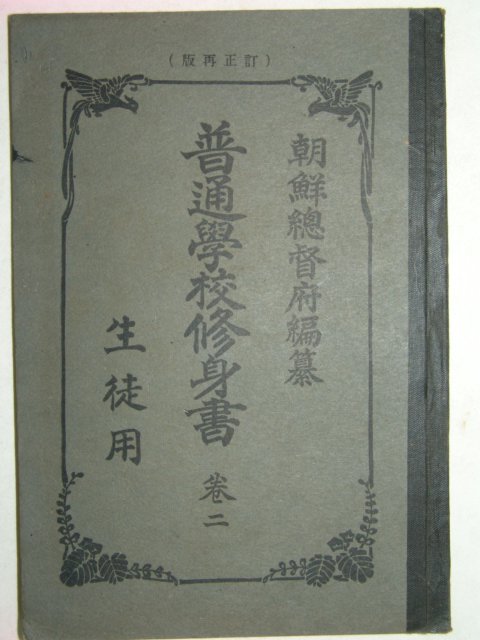 (訂正再版)
朝鮮總督府編纂
普通學校修身書 卷二
生徒用